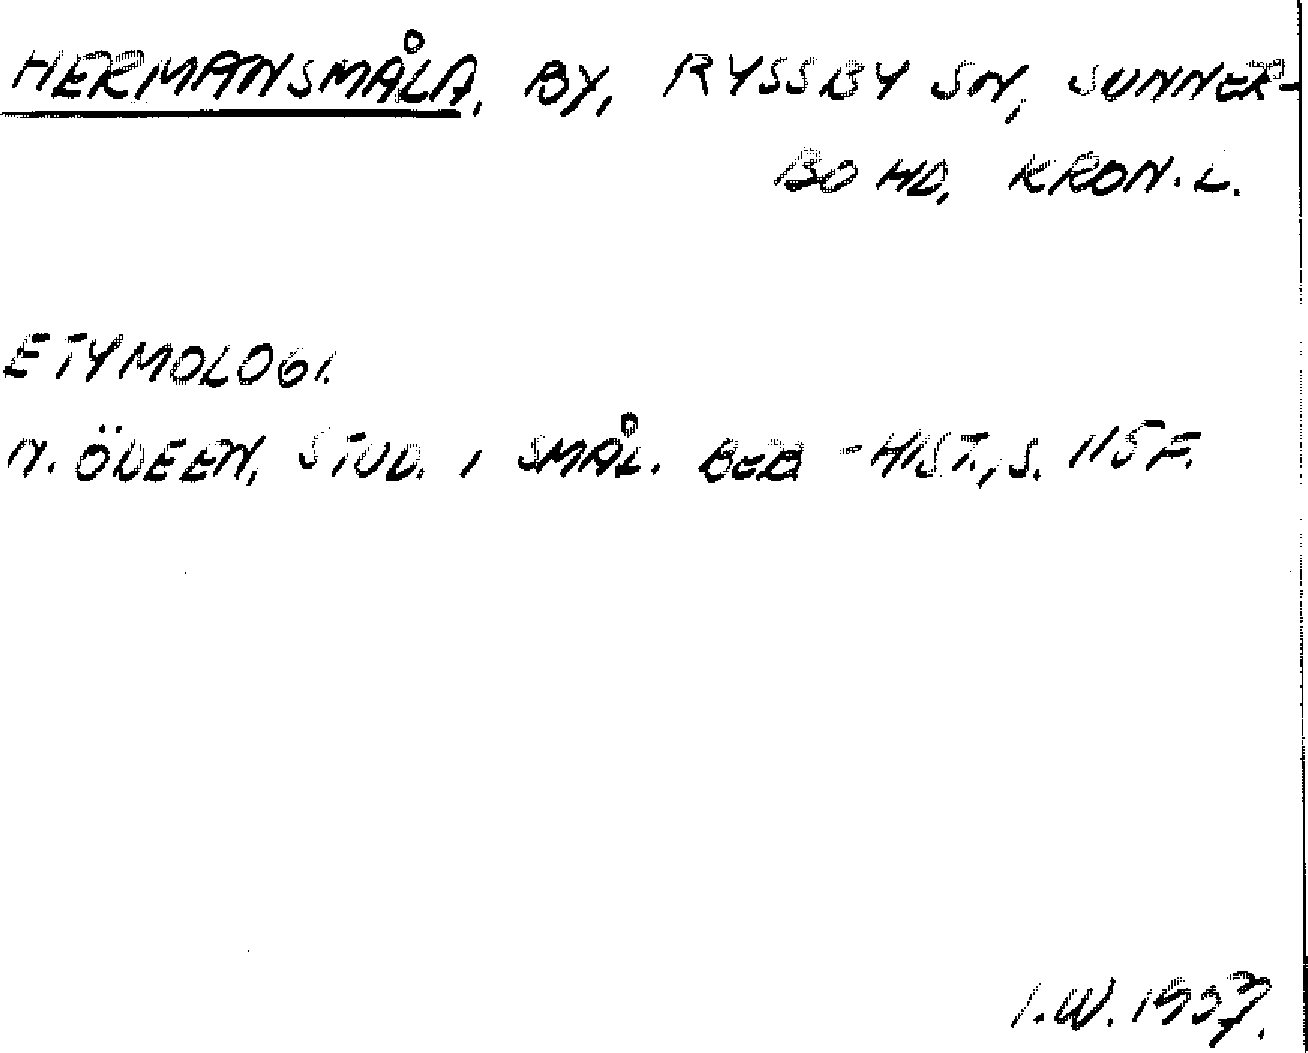 HERMANSMÅLA, BY, RYSSBY SN, SUNNER-
BO HD, KRON. L.
ETYMOLOGI.
N. ÖDEEN, STUD. I SMÅL. BEB-HIST., S. 115 F.
I.W.